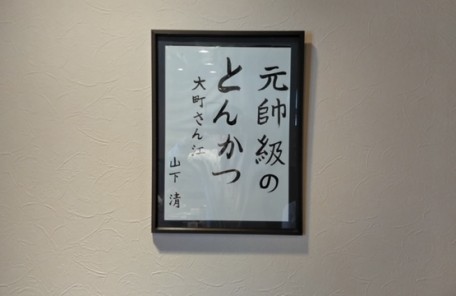 元帥級の
とんかつ
大町さん江
山下 清